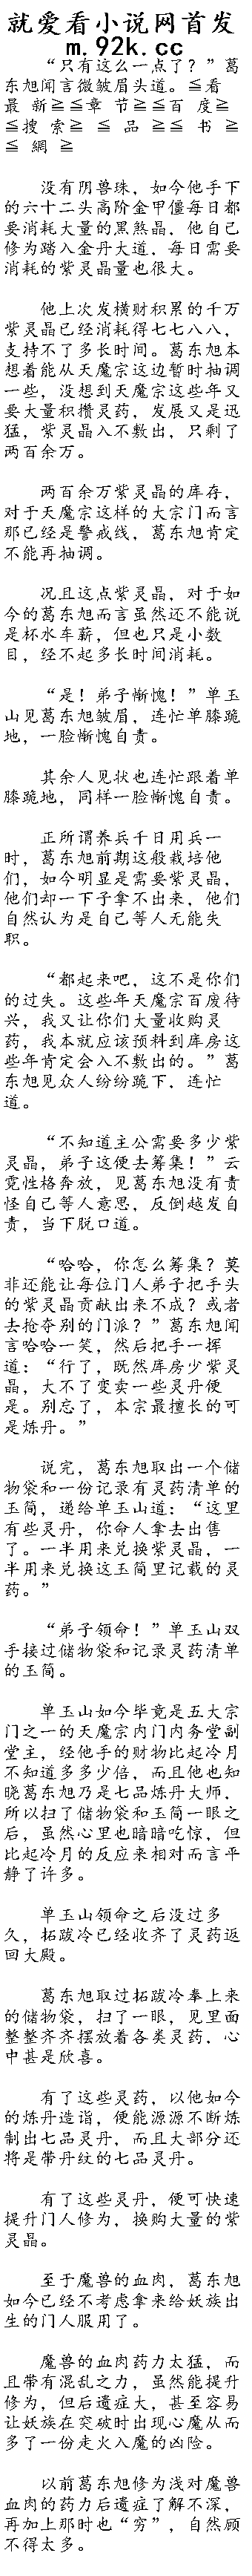 就爱看小说网首发
m.92k.cc
“只有这么一点了？”葛
东旭闻言微皱眉头道。≦看
最 新≧≦章 节≧≦百 度≧
≦搜 索≧ ≦ 品 ≧≦ 书 ≧
≦ 網 ≧
没有阴兽珠，如今他手下
的六十二头高阶金甲僵每日都
要消耗大量的黑煞晶，他自己
修为踏入金丹大道，每日需要
消耗的紫灵晶量也很大。
他上次发横财积累的千万
紫灵晶已经消耗得七七八八，
支持不了多长时间。葛东旭本
想着能从天魔宗这边暂时抽调
一些，没想到天魔宗这些年又
要大量积攒灵药，发展又是迅
猛，紫灵晶入不敷出，只剩了
两百余万。
两百余万紫灵晶的库存，
对于天魔宗这样的大宗门而言
那已经是警戒线，葛东旭肯定
不能再抽调。
况且这点紫灵晶，对于如
今的葛东旭而言虽然还不能说
是杯水车薪，但也只是小数
目，经不起多长时间消耗。
“是！弟子惭愧！”单玉
山见葛东旭皱眉，连忙单膝跪
地，一脸惭愧自责。
其余人见状也连忙跟着单
膝跪地，同样一脸惭愧自责。
正所谓养兵千日用兵一
时，葛东旭前期这般栽培他
们，如今明显是需要紫灵晶，
他们却一下子拿不出来，他们
自然认为是自己等人无能失
职。
“都起来吧，这不是你们
的过失。这些年天魔宗百废待
兴，我又让你们大量收购灵
药，我本就应该预料到库房这
些年肯定会入不敷出的。”葛
东旭见众人纷纷跪下，连忙
道。
“不知道主公需要多少紫
灵晶，弟子这便去筹集！”云
霓性格奔放，见葛东旭没有责
怪自己等人意思，反倒越发自
责，当下脱口道。
“哈哈，你怎么筹集？莫
非还能让每位门人弟子把手头
的紫灵晶贡献出来不成？或者
去抢夺别的门派？”葛东旭闻
言哈哈一笑，然后把手一挥
道：“行了，既然库房少紫灵
晶，大不了变卖一些灵丹便
是。别忘了，本宗最擅长的可
是炼丹。”
说完，葛东旭取出一个储
物袋和一份记录有灵药清单的
玉简，递给单玉山道：“这里
有些灵丹，你命人拿去出售
了。一半用来兑换紫灵晶，一
半用来兑换这玉简里记载的灵
药。”
“弟子领命！”单玉山双
手接过储物袋和记录灵药清单
的玉简。
单玉山如今毕竟是五大宗
门之一的天魔宗内门内务堂副
堂主，经他手的财物比起冷月
不知道多多少倍，而且他也知
晓葛东旭乃是七品炼丹大师，
所以扫了储物袋和玉简一眼之
后，虽然心里也暗暗吃惊，但
比起冷月的反应来相对而言平
静了许多。
单玉山领命之后没过多
久，柘跋冷已经收齐了灵药返
回大殿。
葛东旭取过柘跋冷奉上来
的储物袋，扫了一眼，见里面
整整齐齐摆放着各类灵药，心
中甚是欣喜。
有了这些灵药，以他如今
的炼丹造诣，便能源源不断炼
制出七品灵丹，而且大部分还
将是带丹纹的七品灵丹。
有了这些灵丹，便可快速
提升门人修为，换购大量的紫
灵晶。
至于魔兽的血肉，葛东旭
如今已经不考虑拿来给妖族出
生的门人服用了。
魔兽的血肉药力太猛，而
且带有混乱之力，虽然能提升
修为，但后遗症大，甚至容易
让妖族在突破时出现心魔从而
多了一份走火入魔的凶险。
以前葛东旭修为浅对魔兽
血肉的药力后遗症了解不深，
再加上那时也“穷”，自然顾
不得太多。